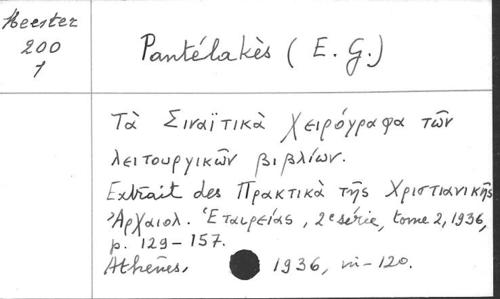 Heester
200
1
Pantélakès (E. G.)
Τὰ Σιναϊτικὰ Χειρόγραφα τῶν
λειτουργικῶν βιβλίων.
Extrait des Πρακτικὰ τῆς Χριστιανικῆς
Ἀρχαιολ. Ἑταιρείας, 2e série, tome 2, 1936,
p. 129-157.
Athènes, 1936, in-120.